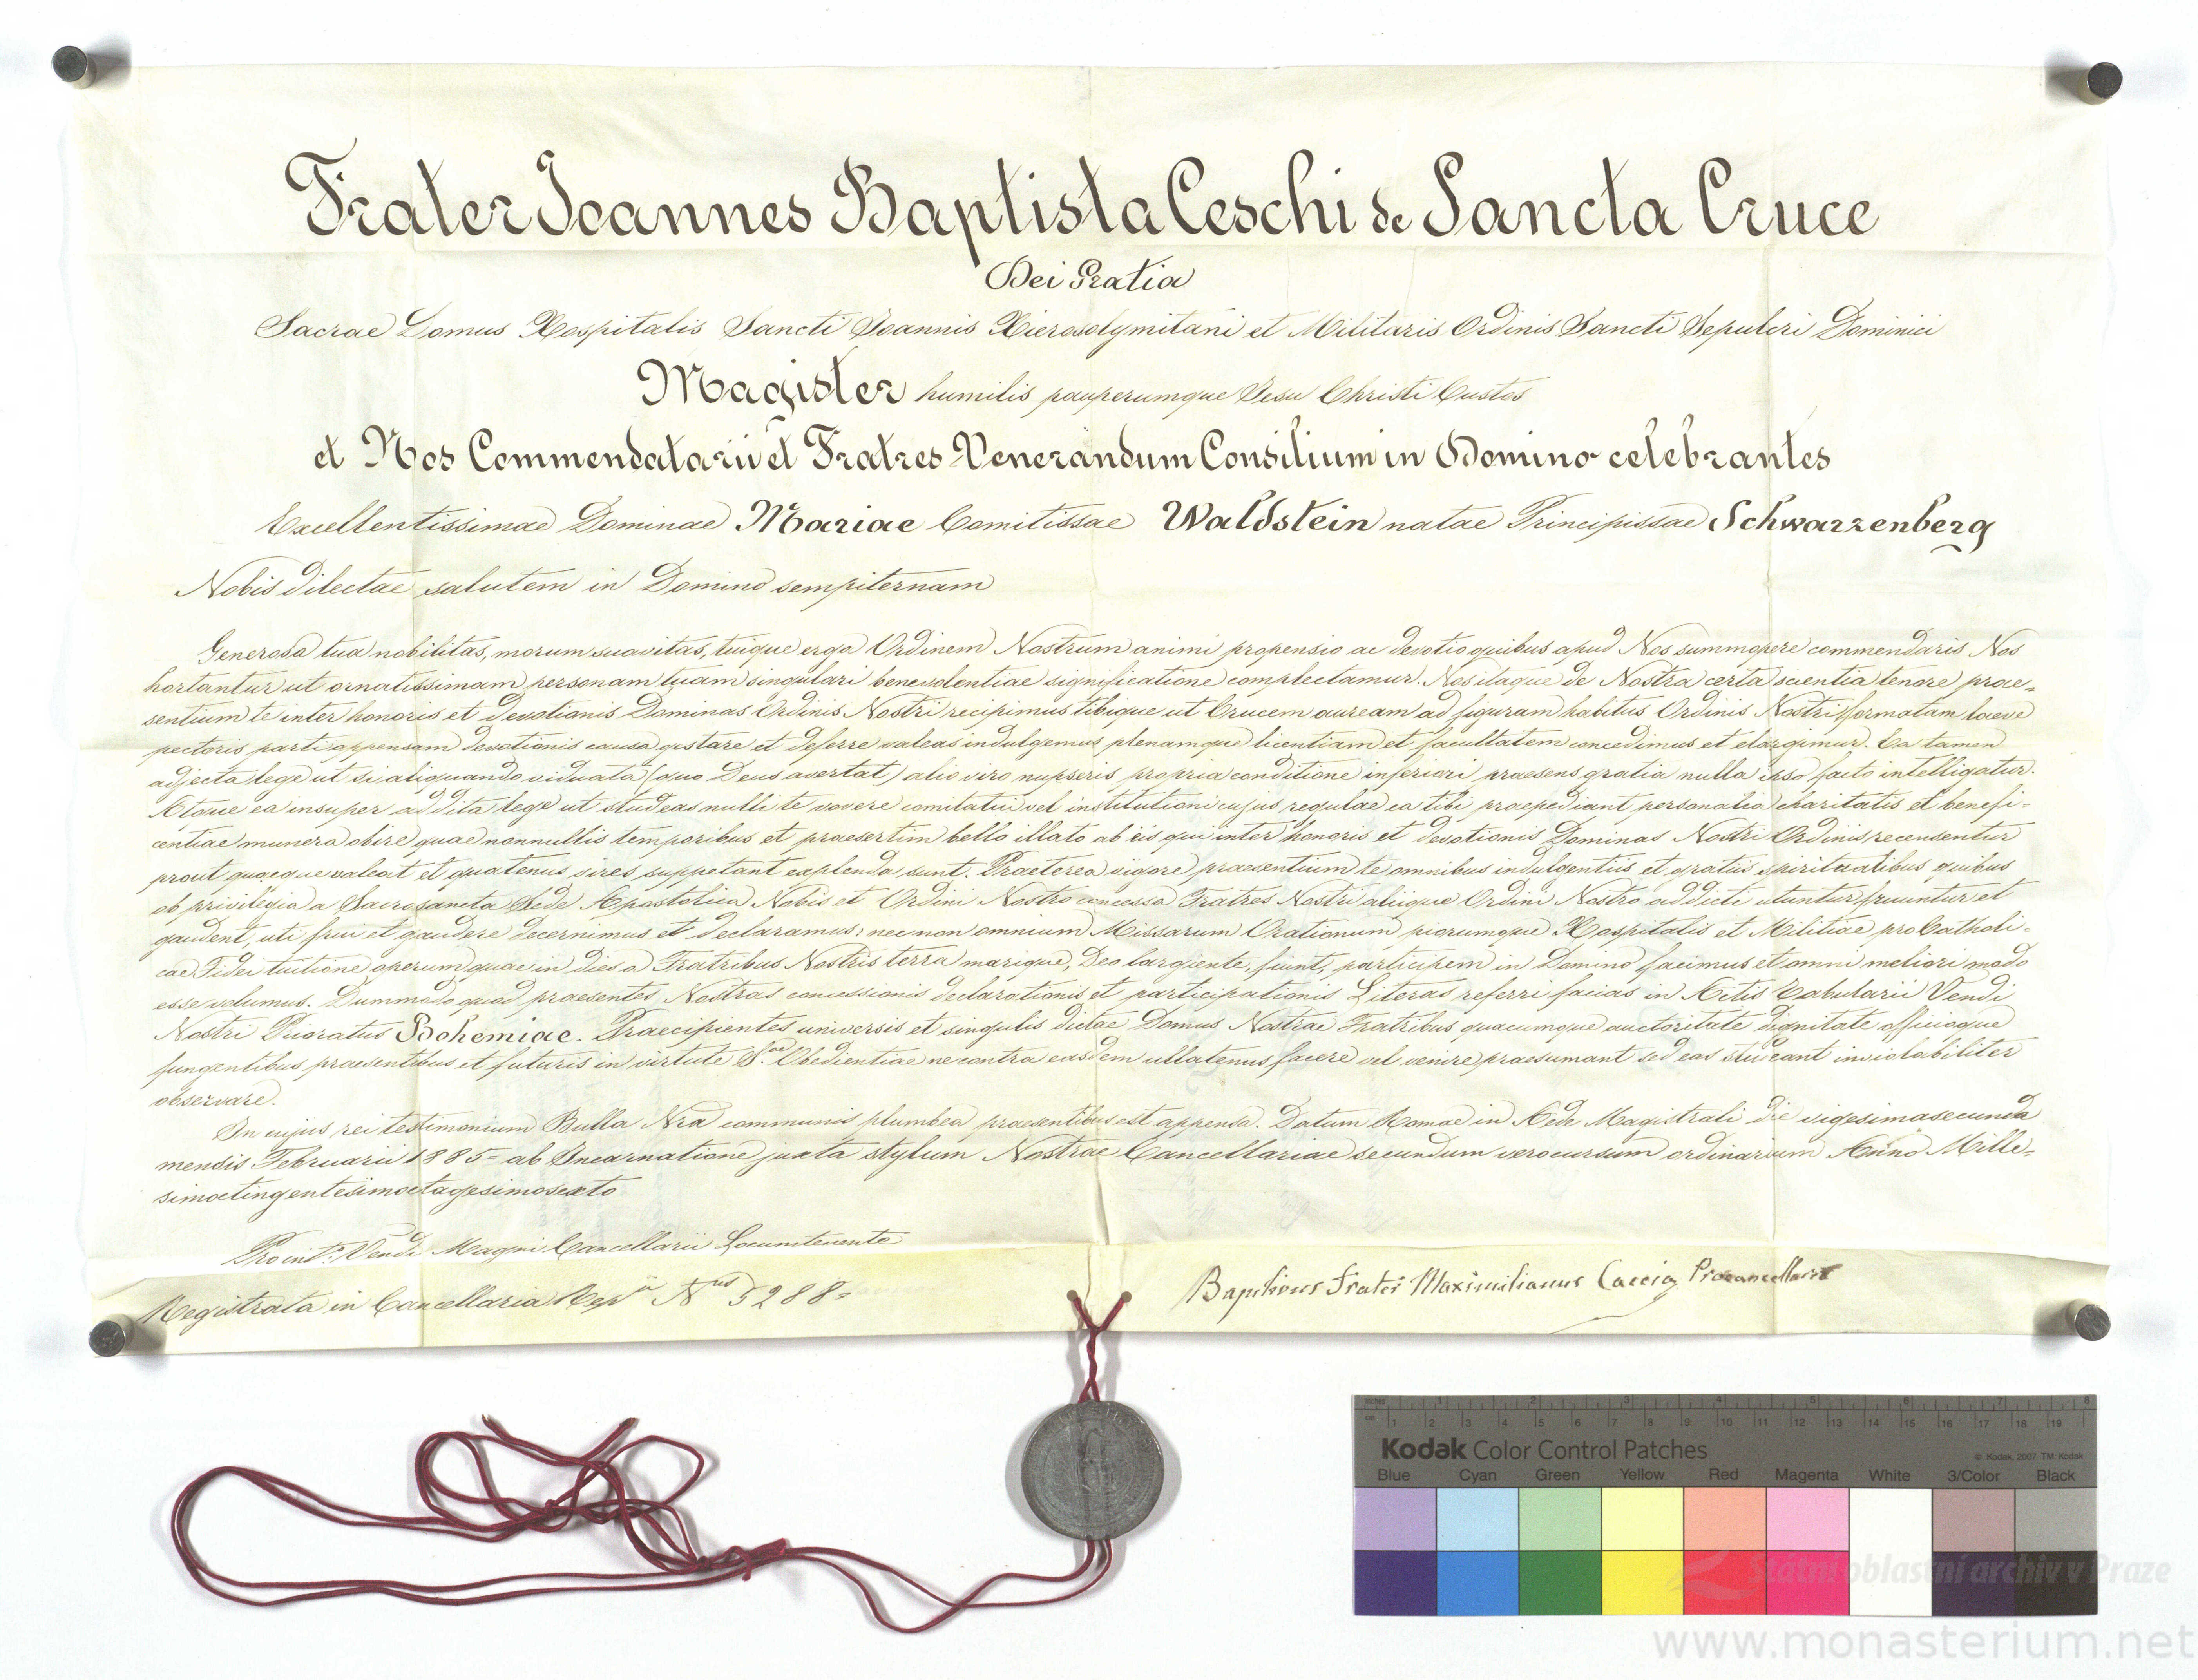 Frater Joannes Baptista Ceschi de Sancta Cruce
Dei Gratia
Sacrae Domus Hospitalis Sancti Joannis Hierosolymitani et Militaris Ordinis Sancti Sepulcri Dominici
Magister humilis pauperumque Jesu Christi Custos
et Nos Commendatarii et Fratres Venerandum Consilium in Domino celebrantes
Excellentissimae Dominae Mariae Comitissae Waldstein natae Principissae Schwarzenberg
Nobis dilectae salutem in Domino sempiternam
Generosa tua nobilitas, morum suavitas, tuique erga Ordinem Nostrum animi propensio ac devotio quibus apud Nos summopere commendaris Nos
hortantur ut ornatissimam personam tuam singulari benevolentiae significatione complectamur. Nos itaque de Nostra certa scientia tenore prae=
sentium te inter honoris et devotionis Dominas Ordinis Nostri recipimus tibique ut Crucem auream ad figuram habitus Ordinis Nostri formatam laevae
pectoris parti appensam devotionis causa gestare et deferre valeas indulgemus plenamque licentiam et facultatem concedimus et elargimur. Ea tamen
adjecta lege ut si aliquando viduata (quo Deus avertat) alio viro nupseris propria conditione inferiori praesens gratia nulla ipso facto intelligatur.
Atque ea insuper addita lege ut studeas nulli te vovere comitatui vel institutioni cujus regulae ea tibi praepediant personalia charitatis et benefi=
centiae munera obire quae nonnullis temporibus et praesertim bello illato ab eis qui inter honoris et devotionis Dominas Nostri Ordinis recensentur
prout quaeque valeat et quatenus vires suppetant explenda sunt. Praeterea vigore praesentium te omnibus indulgentiis et gratiis spiritualibus quibus
ob privilegia a Sacrosancta Sede Apostolica Nobis et Ordini Nostro concessa Fratres Nostri aliique Ordini Nostro addicti utuntur fruuntur et
gaudent, uti frui et gaudere decernimus et declaramus; nec non omnium Missarum Orationum piorumque Hospitalis et Militiae pro Catholi=
cae Fidei tuitione operum quae in dies a Fratribus Nostris terra marique, Deo largiente, fiunt, participem in Domino facimus et omni meliori modo
esse volumus. Dummodo quod praesentes Nostras concessionis declarationis et participationis Literas referri facias in Actis Tabularii Vendi
Nostri Prioratus Bohemiae. Praecipientes universis et singulis dictae Domus Nostrae Fratribus quacumque auctoritate dignitate officioque
fungentibus praesentibus et futuris in virtute S.ae Obedientiae ne contra easdem ullatenus facere vel venire praesumant sed eas studeant inviolabiliter
observare.
In cujus rei testimonium Bulla Nra communis plumbea praesentibus est appensa. Datum Romae in Aede Magistrali die vigesimasecunda
mensis Februarii 1885= ab Incarnatione juxta stylum Nostrae Cancellariae secundum vero cursum ordinarium Anno Mille=
simoctingentesimoctagesimosexto
Vendi Magni Cancellarii Locumtenente
Registrata in Cancellaria Nrus 5288=
Frater Maximilianus Caccia Procancellarius
inches 1 2 3 4 5 6 7 8
cm 1 2 3 4 5 6 7 8 9 10 11 12 13 14 15 16 17 18 19
Kodak Color Control Patches
© Kodak, 2007 TM: Kodak
Blue Cyan Green Yellow Red Magenta White 3/Color Black
Státní oblastní archiv v Praze
www.monasterium.net